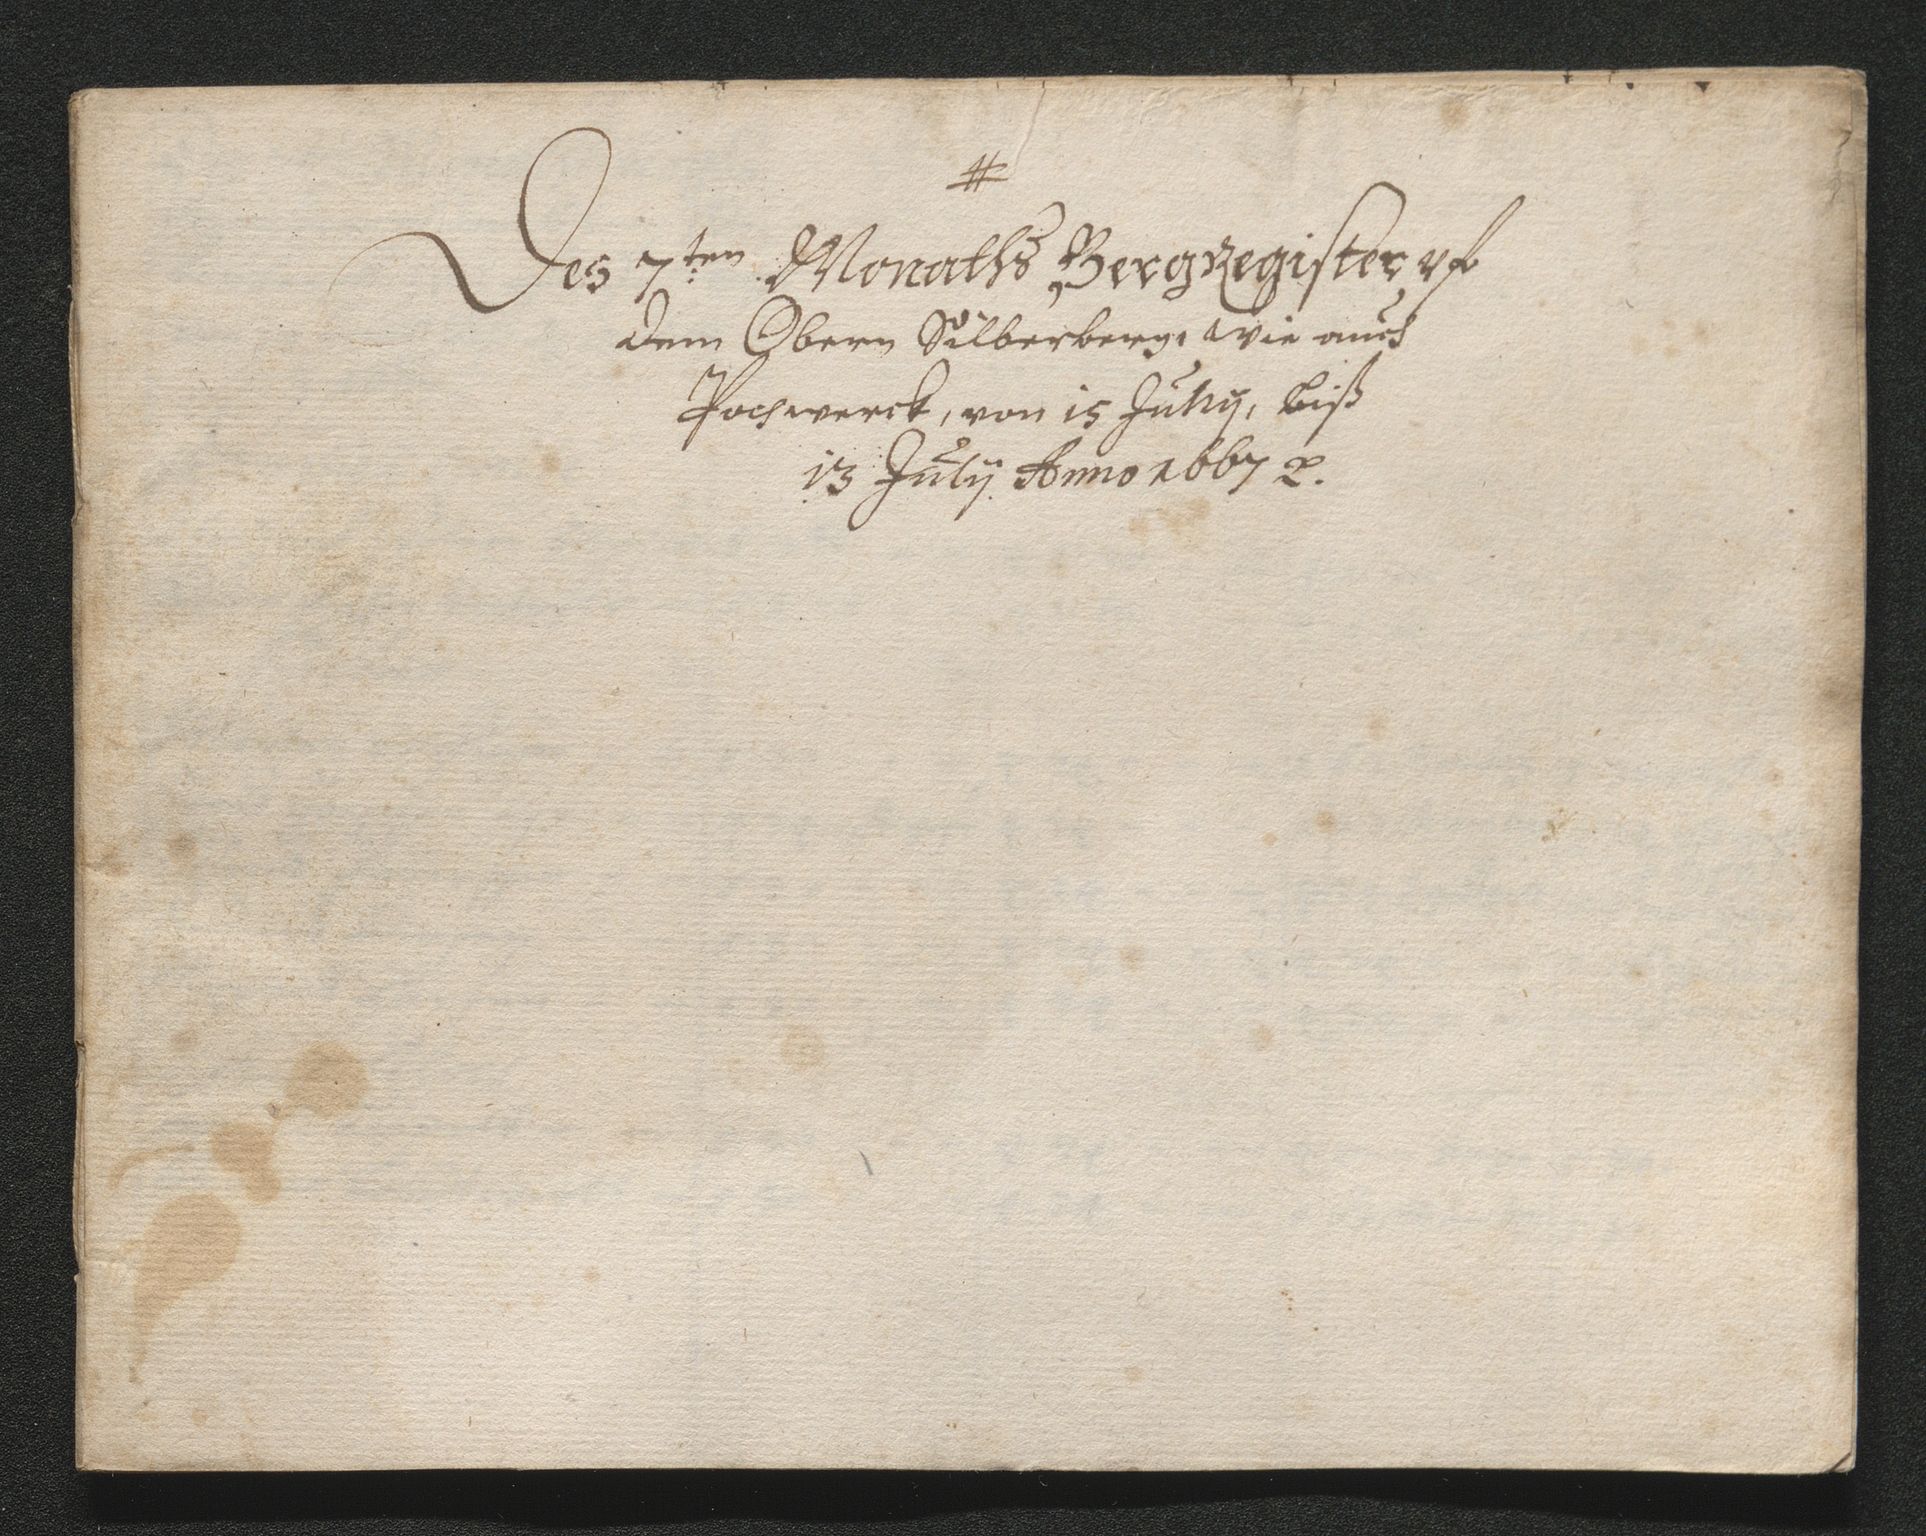 #
Des 7ten Monaths BergRegister uf
dem Obern Silberberg, wie auch
Pochwerck, von 15 Juny, biß
13 July Anno 1667